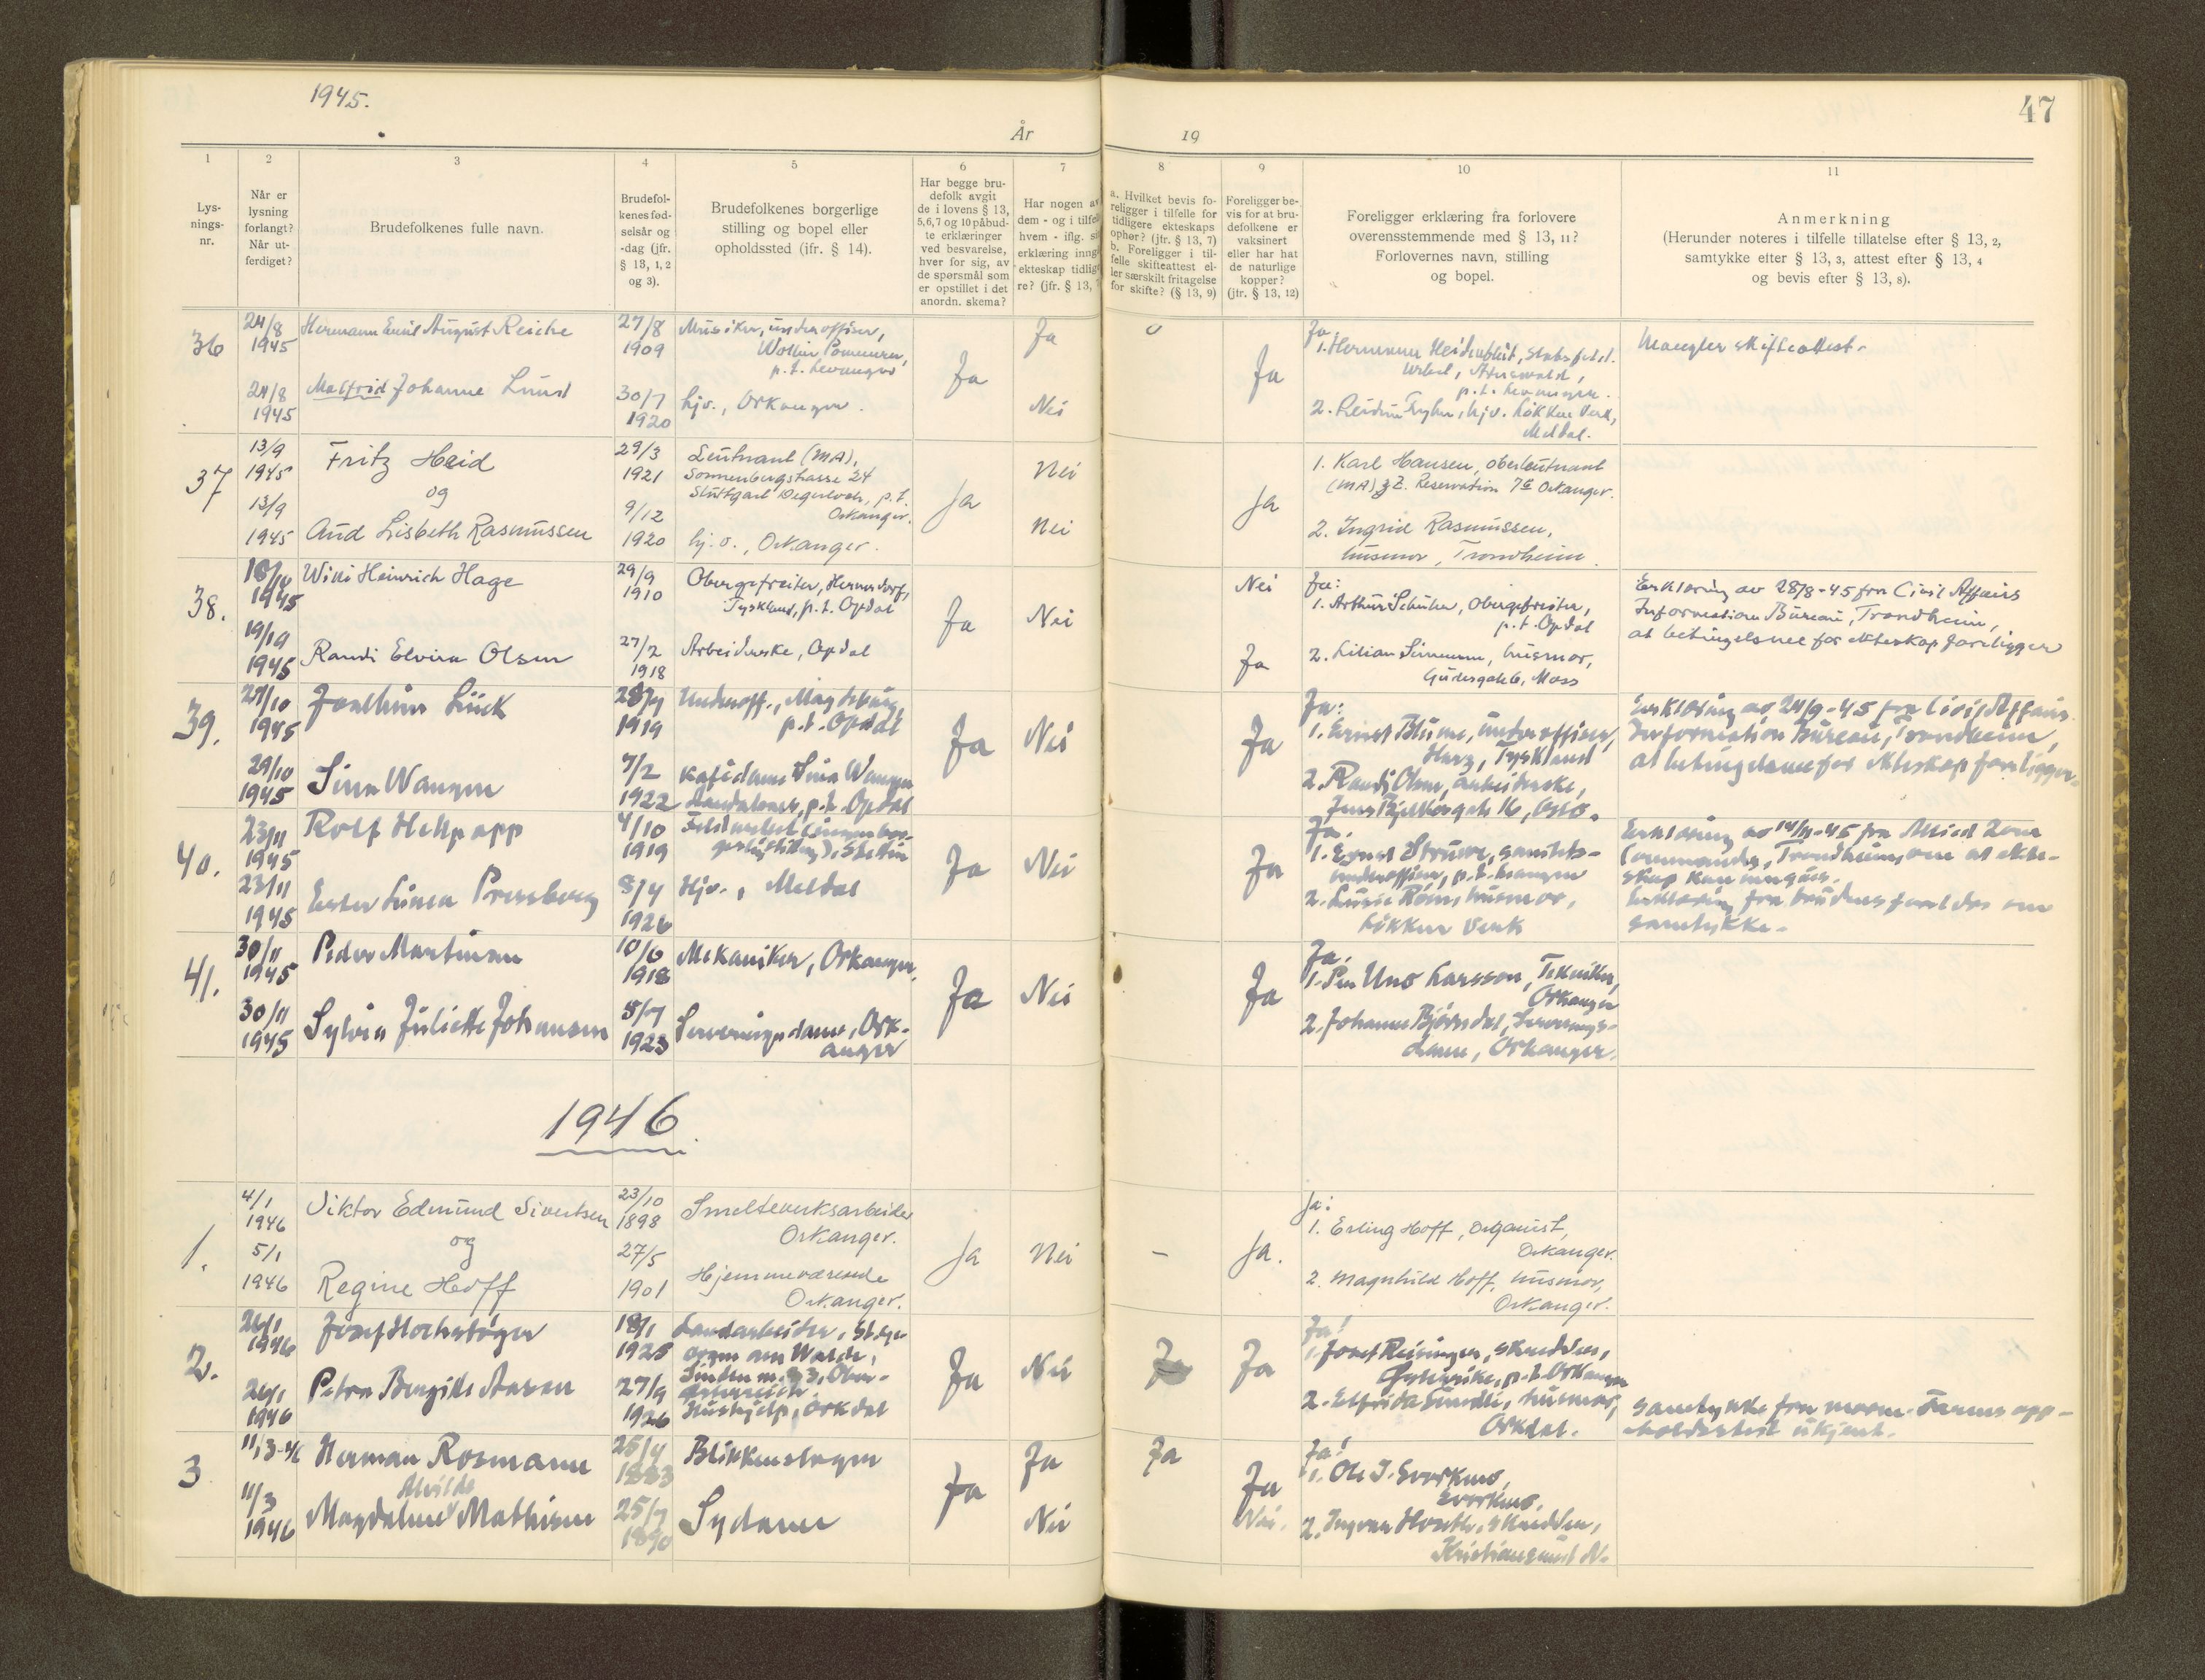 1945.
47
År 19
1
2
3
4
5
6
7
8
9
10
11
Lys-
nings-
nr.
Når er
lysning
forlangt?
Når ut-
ferdiget?
Brudefolkenes fulle navn.
Brudefol-
kenes fød-
selsår og
-dag (jfr.
§ 13, 1, 2
og 3).
Brudefolkenes borgerlige
stilling og bopel eller
opholdssted (ifr. § 14).
Har begge bru-
defolk avgit
de i lovens § 13,
5,6,7 og 10 påbud-
te erklæringer
ved besvarelse,
hver for sig, av
de spørsmål som
er opstillet i det
anordn. skema?
Har nogen av
dem - og i tilfe
hvem - iflg. s
erklæring inng
ekteskap tidlig
re? (jfr. § 13,
a. Hvilket bevis fo-
religger i tilfelle for
tidligere ekteskaps
ophør? (jtr. § 13, 7)
b. Foreligger i til-
felle skifteattest el-
ler særskilt fritagelse
for skifte? (§ 13, 9)
Foreligger be-
vis for at bru-
defolkene er
vaksinert
eller har hat
de naturlige
kopper?
(jtr. § 13, 12)
Foreligger erklæring fra forlovere
overensstemmende med § 13, 11?
Forlovernes navn, stilling
og bopel.
Anmerkning
(Herunder noteres i tilfelle tillatelse efter § 13, 2,
samtykke etter § 13, 3, attest efter § 13, 4
og bevis efter § 13, 8).
36
24/8
1945
Hermann Emil August Reiche
27/8
1909
Musiker, underoffiser,
Wollin Pommern,
p.t. Levanger
Ja
Ja
0
Ja
Ja,
1. Hermann
p.t. Levanger.
24/8
1945
Malfrid Johanne Lund
30/7
1920
hjv., Orkanger.
Nei
2. Reidun Fryhn, hjv. Løkken Verk,
Meldal.
Mangler skifteattest.
37
13/9
1945
Fritz Heid
og
29/3
1921
Leutnant (MA),
Sonnenbergstrasse 24
Stuttgart Degerloch, p.t.
Orkanger.
Ja
Nei
Ja
1. Karl Hansen, oberleutnant
(MA) z Z. Reservation 7a Orkanger.
13/9
1945
Aud Lisbeth Rasmussen
9/12
1920
hj.v., Orkanger.
Nei
2. Ingrid Rasmussen,
husmor, Trondheim.
38.
1945
Willi Heinrich Hage
29/9
1910
Obergefreiter, Hermsdorf,
Tyskland, p.t. Opdal
Ja
Nei
Nei
Ja:
1. Arthur Schuler, Obergefreiter,
p.t. Opdal
19/10
1945
Randi Elvira Olsen
27/2
1918
Arbeiderske, Opdal
Ja
2. Lilian Simensen, husmor,
Gudesgate 6, Moss
Erklæring av 28/8-45 fra Civil Affairs
Information Bureau, Trondheim,
at betingelsene for ekteskap foreligger
39.
29/10
1945
Joachim Lück
1919
Underoff., Magdeburg,
p.t. Opdal
Ja
Nei
Ja
Ja:
1. Ernst Blume, underoffiser,
Harz, Tyskland
29/10
1945
Sina Wangen
7/2
1922
Kafédame Sina Wangen
Aandalsnes, p.t. Opdal
2. Randi Olsen, arbeiderske,
Jens Bjelkesgate 16, Oslo.
Erklæring av 24/9-45 fra Civil Affairs
Information Bureau, Trondheim,
at betingelsene for ekteskap foreligger.
40.
23/11
1945
Rolf Hellpapp
4/10
1919
Stettin
Ja
Nei
Ja
Ja.
1. Ernst Struwe, sanitets-
underoffiser, p.t. Levanger
23/11
1945
Ester Linea Pressberg
8/4
1926
Hjv., Meldal
2. Lussi Röen, husmor,
Løkken Verk
Erklæring av 14/11-45 fra Allied Zone
Commander, Trondheim, om at ekte-
skap kan inngåes.
Erklæring fra brudens foreldre om
samtykke.
41.
30/11
1945
Peder Martinsen
10/6
1918
Mekaniker, Orkanger.
Ja
Nei
Ja
Ja.
1. Per Uno Larsson, Tekniker,
Orkanger
30/11
1945
Sylvia Juliette Johansen
5/7
1923
Serveringsdame, Ork-
anger
2. Johanne Bjørndal, Serverings-
dame, Orkanger.
1946.
1.
4/1
1946
Viktor Edmund Sivertsen
og
23/10
1898
Smelteverksarbeider
Orkanger.
Ja
Nei
-
Ja.
Ja:
1. Erling Hoff, Organist,
Orkanger.
5/1
1946
Regine Hoff
27/5
1901
Hjemmeværende
Orkanger.
2. Magnhild Hoff, husmor,
Orkanger.
2.
26/1
1946
Josef Hochstöger
18/1
1925
Landarbeider, St. Ge-
orgen am Walde,
Linden nr. 93, Ober-
österreich.
Ja
Nei
Ja
Ja
Ja!
1. Josef Reisinger, skredder,
Østerrike, p.t. Orkanger
26/1
1946
Petra Bergitte Aasen
27/9
1926
Hushjelp, Orkdal
2. Elfrida Sundli, husmor,
Orkdal.
Samtykke fra moren. Farens opp-
holdssted ukjent.
3
11/3-46
Herman Rosmann
25/4
1883
Blikkenslager
Ja
Ja
Ja
Ja
Ja!
1. Ole J. Evorkmo,
Evorkmo.
11/3
1946
Alvilde
Magdalene Mathisen
25/7
1890
Sydame
Nei
Nei.
2. Ingvar Hoseth, skredder,
Kristiansund N.